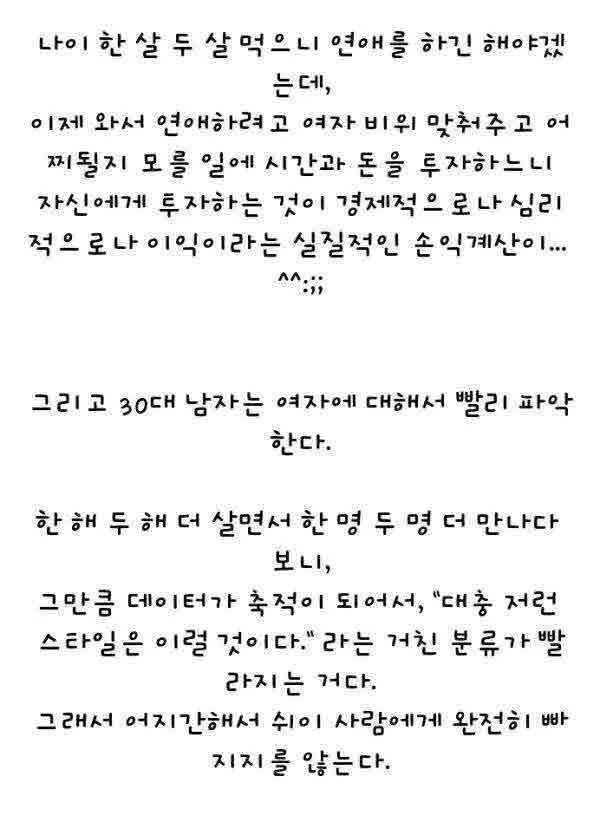 나이 한 살 두 살 먹으니 연애를 하긴 해야겠
는데,
이제 와서 연애하려고 여자 비위 맞춰주고 어
찌될지 모를 일에 시간과 돈을 투자하느니
자신에게 투자하는 것이 경제적으로나 심리
적으로나 이익이라는 실질적인 손익계산이...
^^:;;
그리고 30대 남자는 여자에 대해서 빨리 파악
한다.
한 해 두 해 더 살면서 한 명 두 명 더 만나다
보니,
그만큼 데이터가 축적이 되어서, "대충 저런
스타일은 이럴 것이다." 라는 거친 분류가 빨
라지는 거다.
그래서 어지간해서 쉬이 사람에게 완전히 빠
지지를 않는다.